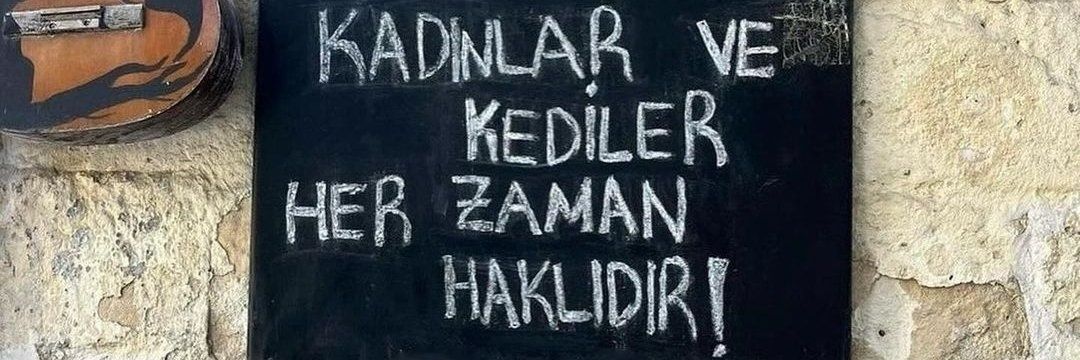 KADINLAR VE
KEDİLER
HER ZAMAN
HAKLIDIR!